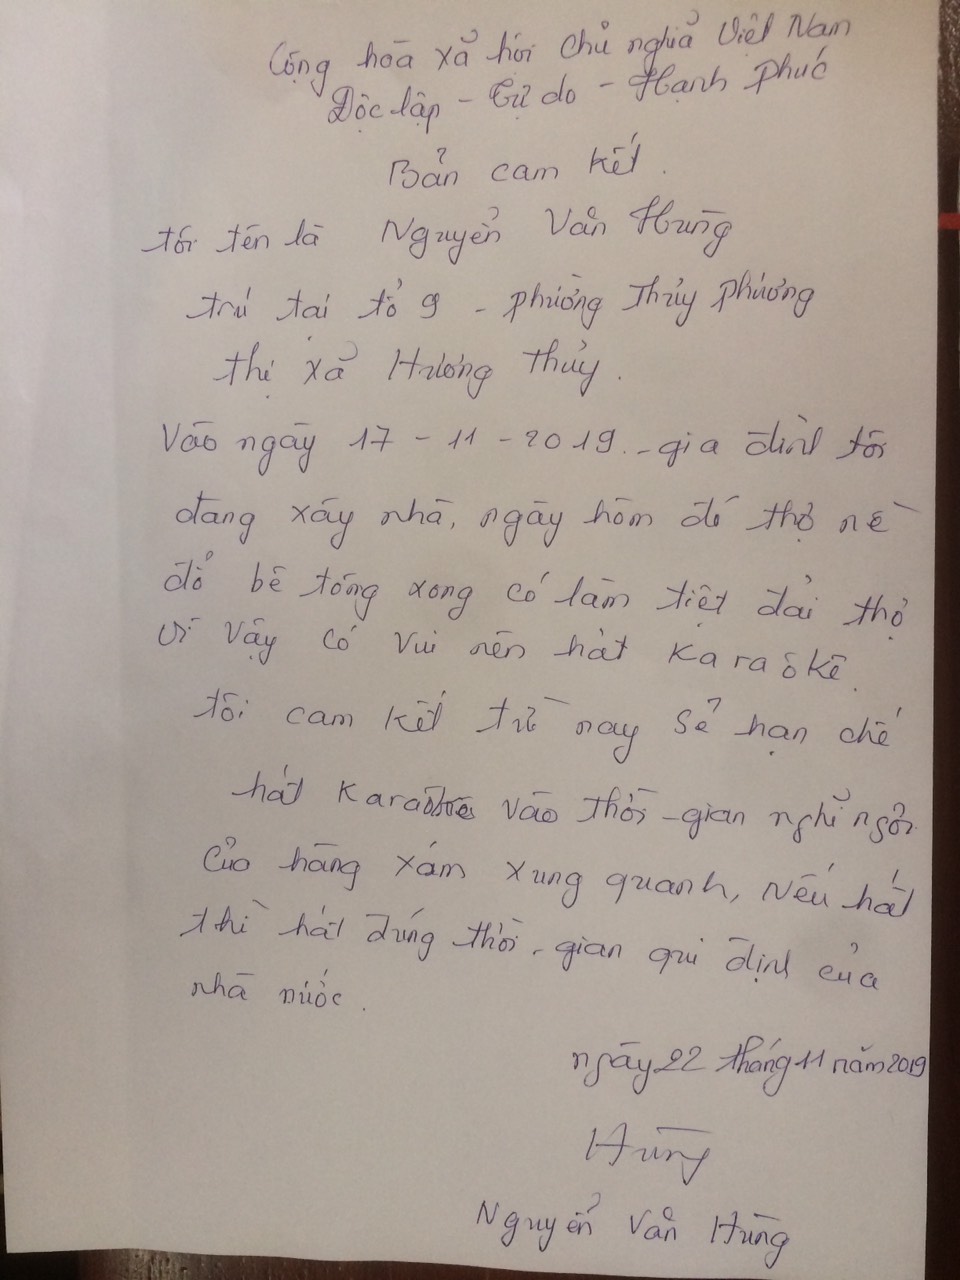 Cộng hòa xả hội chủ nghỉa Việt Nam
Độc lập - Tự do - Hạnh phúc
Bản cam kết.
tôi tên là Nguyển Văn Hùng
trú tại tổ 9 - phường Thủy phương
thị xả Hương thủy.
Vào ngày 17 - 11 - 2019. - gia đình tôi
đang xây nhà, ngày hôm đó thợ nề
đổ bê tông xong có làm tiệt đải thợ
vì vậy có vui nên hát Karaôkê.
tôi cam kết từ nay sẻ hạn chế
hát Karaôkê vào thời - gian nghỉ ngơi
của hàng xóm xung quanh, Nếu hát
thì hát đúng thời - gian qui định của
nhà nước.
ngày 22 tháng 11 năm 2019
Hùng
Nguyển Văn Hùng